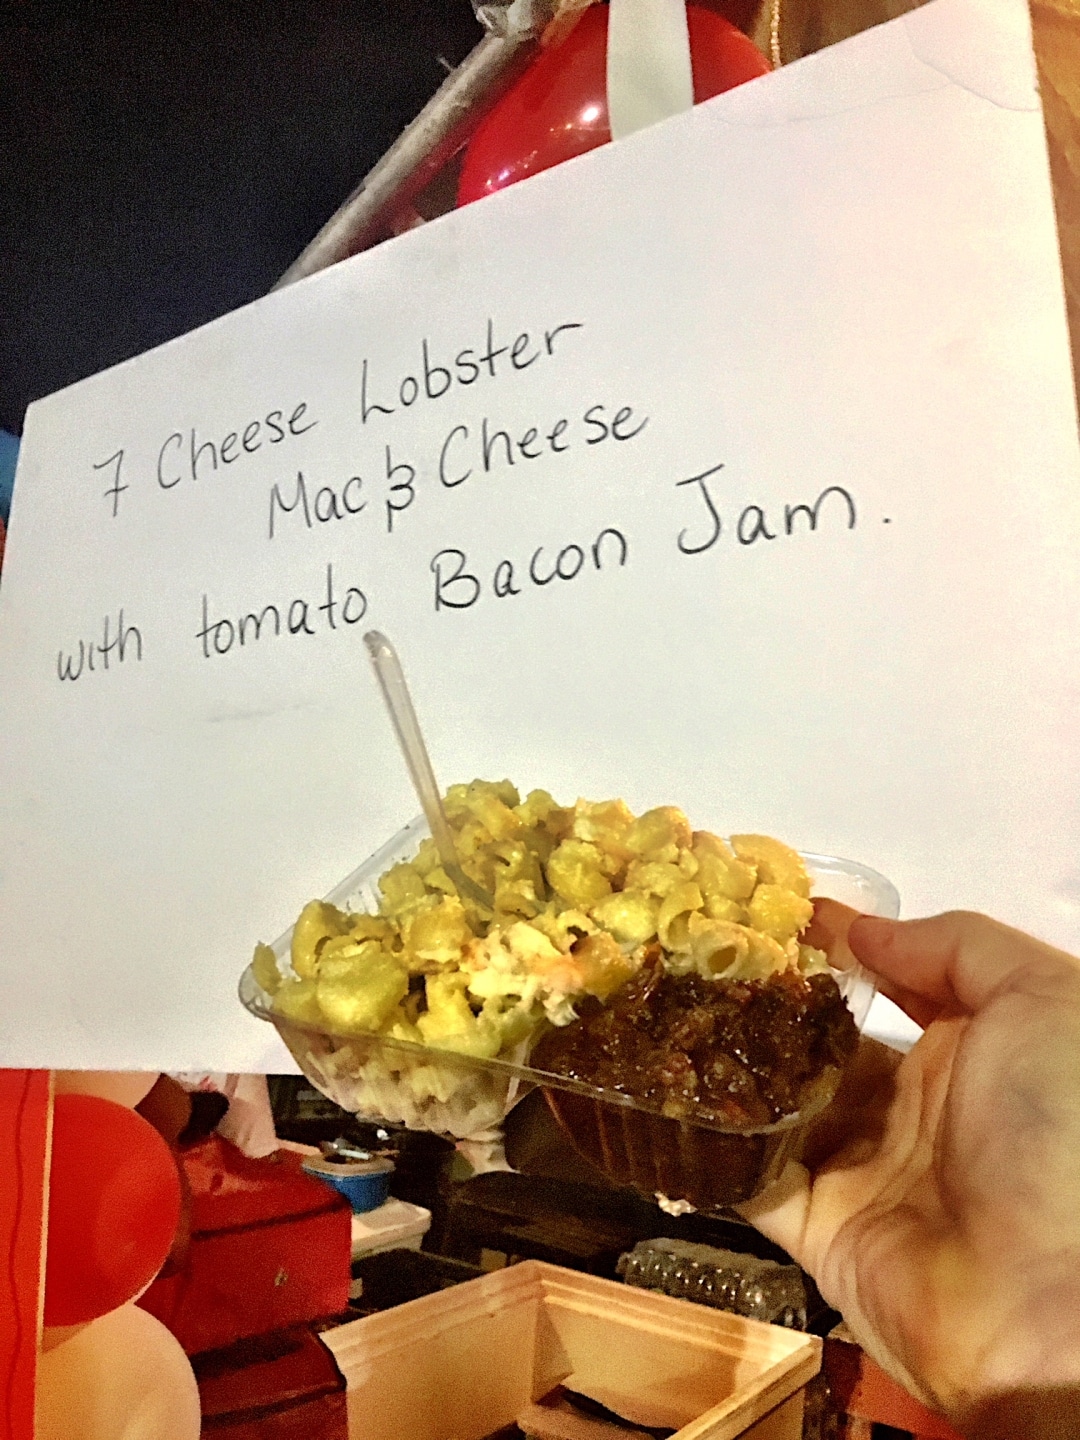 7 Cheese Lobster
Mac & Cheese
with tomato Bacon Jam.